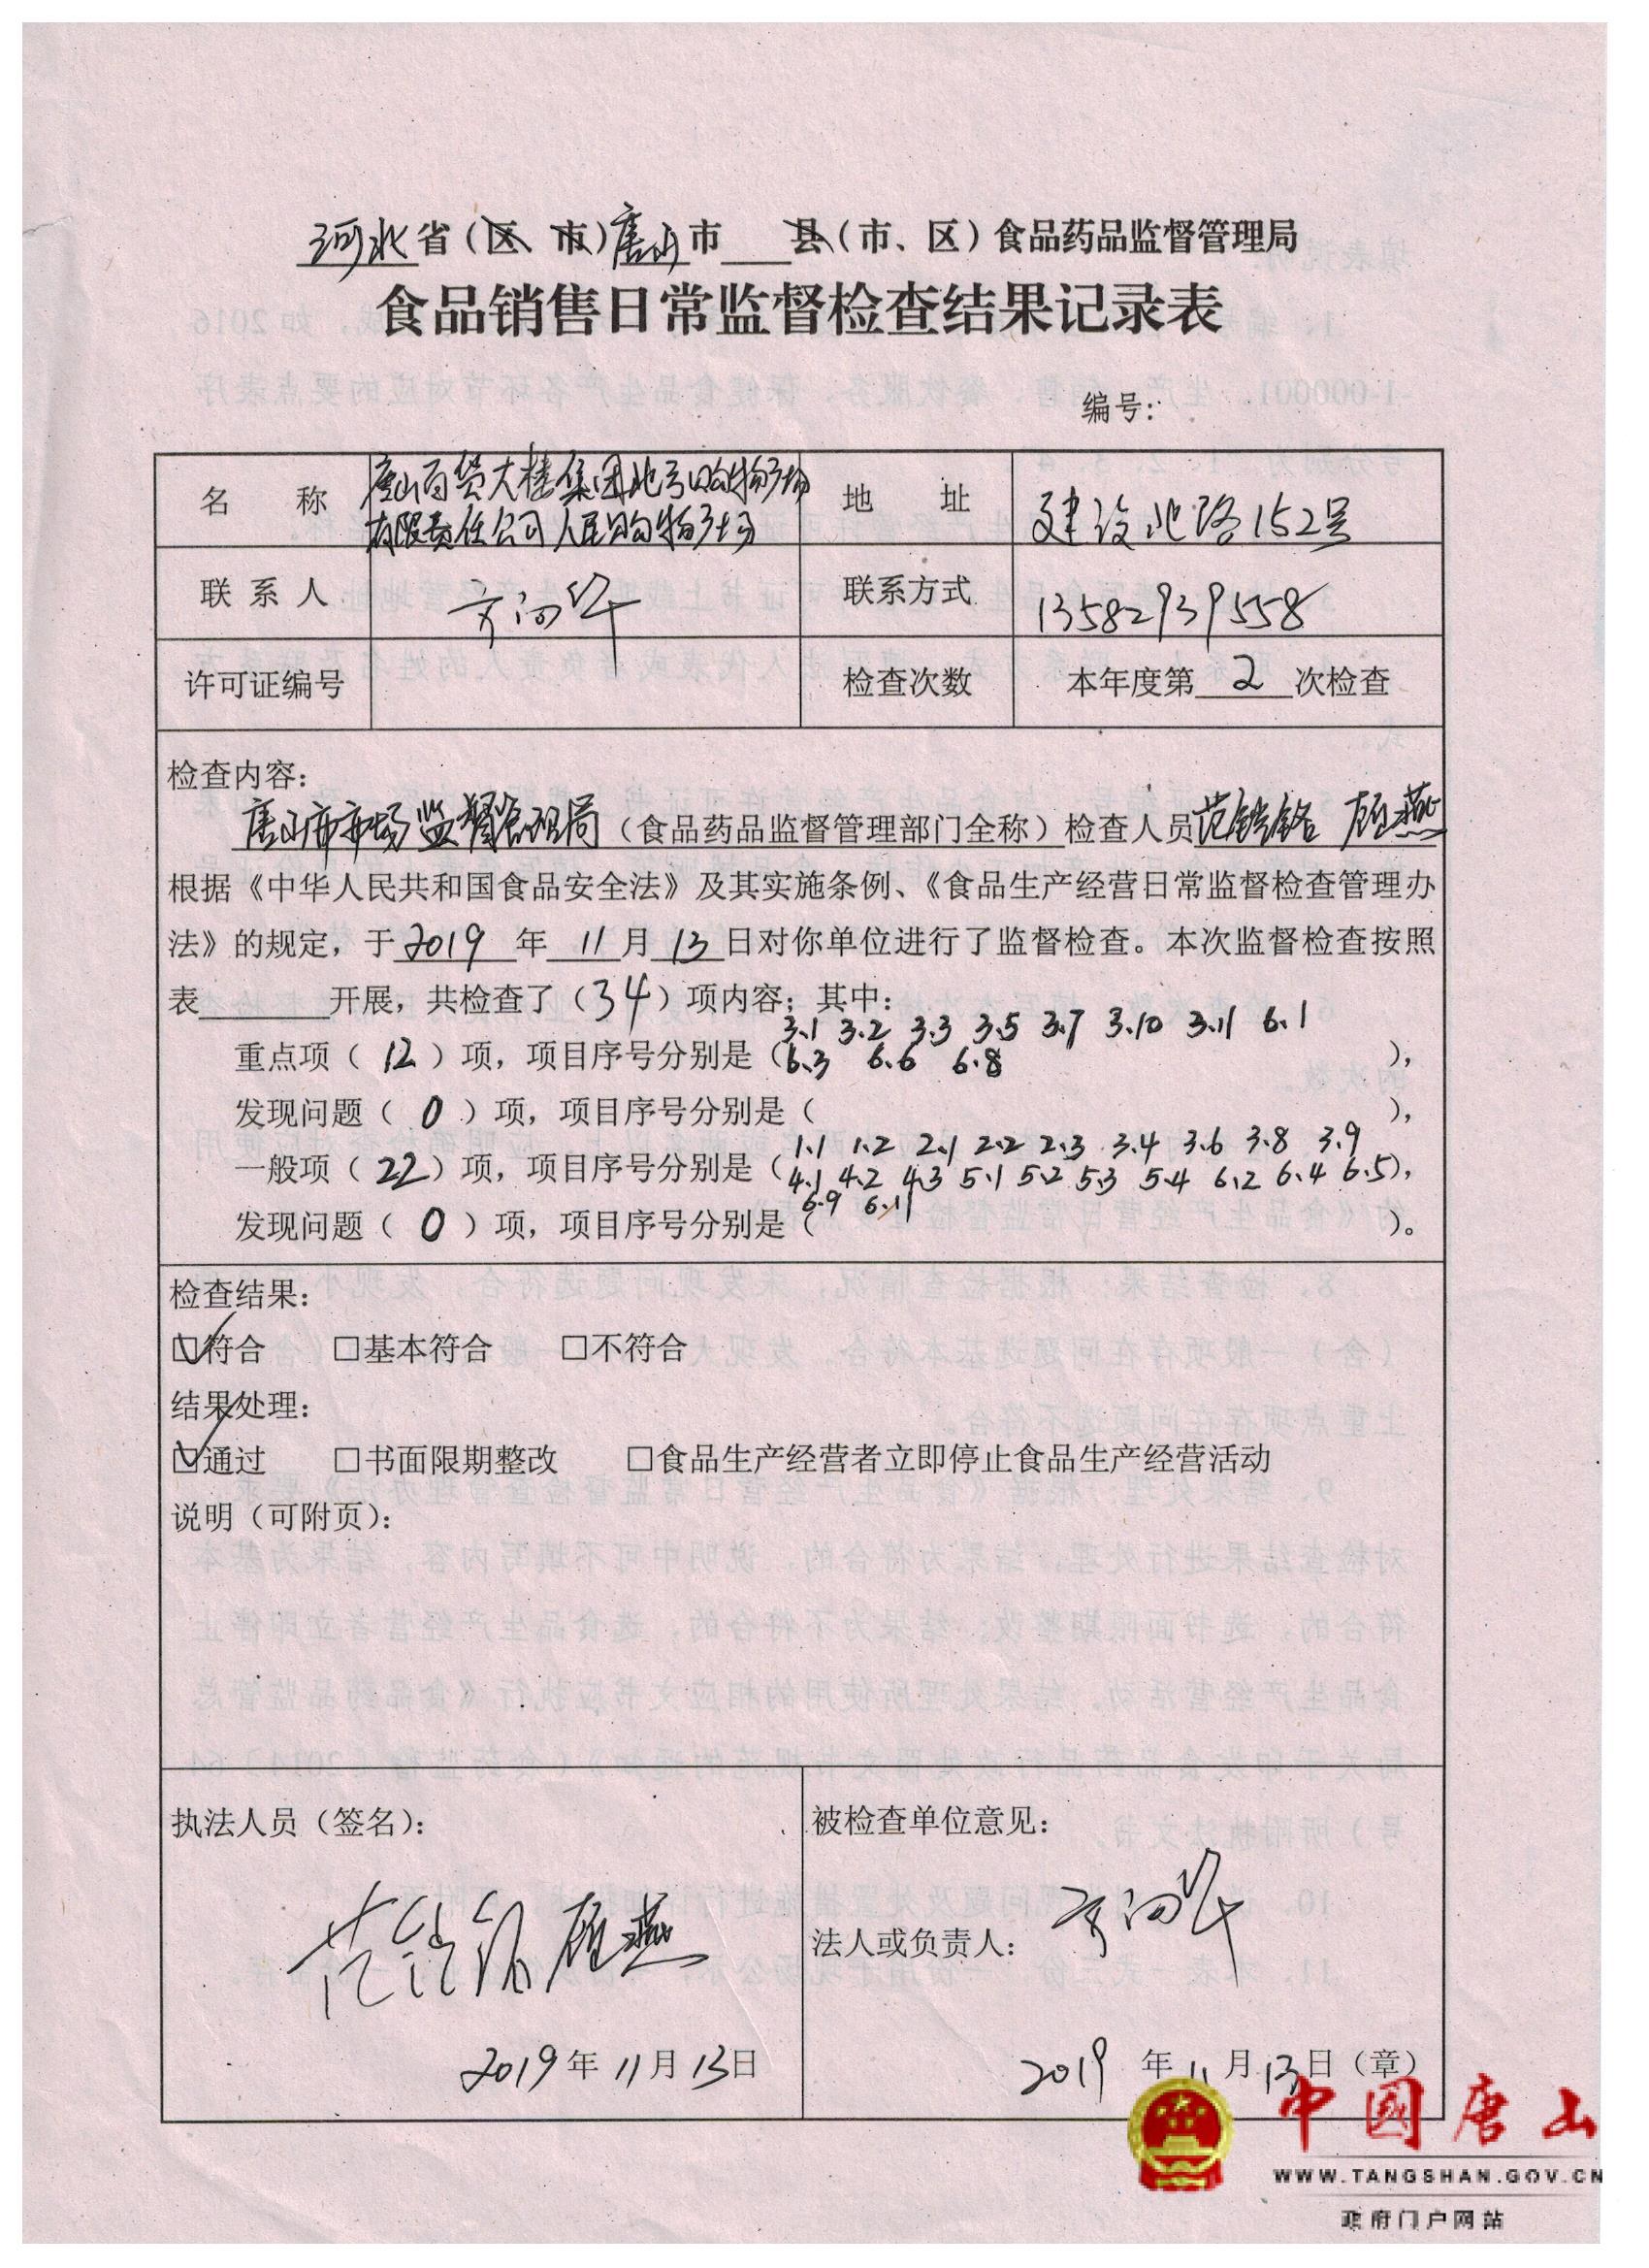 河北省（区、市）唐山市 县（市、区）食品药品监督管理局
食品销售日常监督检查结果记录表
编号：
名 称 唐山百货大楼集团北方购物广场有限责任公司人民购物广场 地 址 建设北路152号
联系人 联系方式 13582939558
许可证编号 检查次数 本年度第 2 次检查
检查内容：
唐山市市场监督管理局（食品药品监督管理部门全称）检查人员范 顾燕
根据《中华人民共和国食品安全法》及其实施条例、《食品生产经营日常监督检查管理办
法》的规定，于2019 年 11 月 13 日对你单位进行了监督检查。本次监督检查按照
表 开展，共检查了（34）项内容；其中：
重点项（12）项，项目序号分别是（3.1 3.2 3.3 3.5 3.7 3.10 3.11 6.1
6.3 6.6 6.8 ），
发现问题（ 0 ）项，项目序号分别是（ ），
一般项（22）项，项目序号分别是（1.1 1.2 2.1 2.2 2.3 3.4 3.6 3.8 3.9
4.1 4.2 4.3 5.1 5.2 5.3 5.4 6.2 6.4 6.5），
6.9 6.11
发现问题（ 0 ）项，项目序号分别是（ ）。
检查结果：
☑符合 □基本符合 □不符合
结果处理：
☑通过 □书面限期整改 □食品生产经营者立即停止食品生产经营活动
说明（可附页）：
执法人员（签名）： 被检查单位意见：
范 顾燕
法人或负责人：
2019年11月13日 2019 年11月13日（章）
中国唐山
WWW.TANGSHAN.GOV.CN
政府门户网站